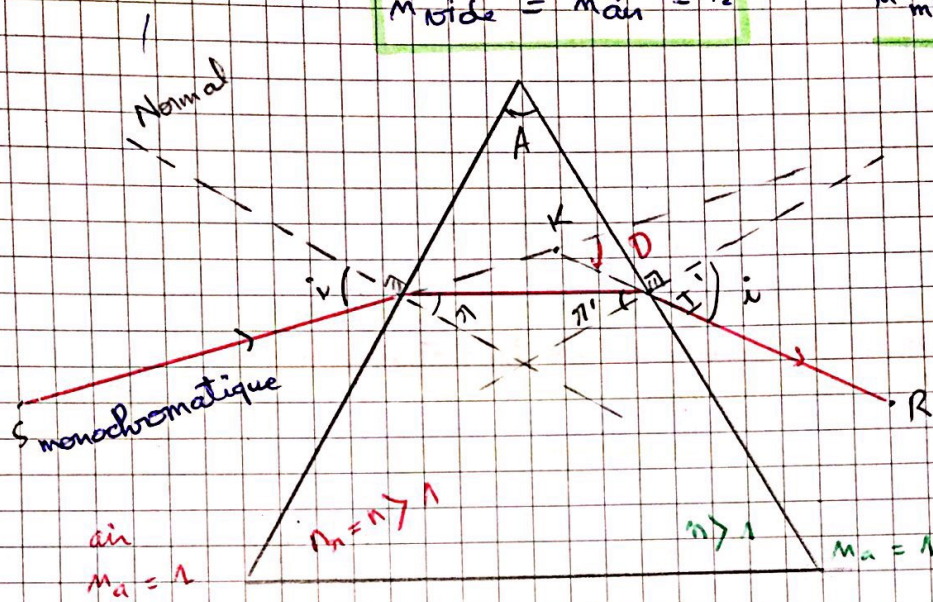 n vide = n air = 1
Normal
A
K
D
i
r
r'
I'
i
S
monochromatique
R
n > 1
n > 1
air
n_a = 1
n_a = 1